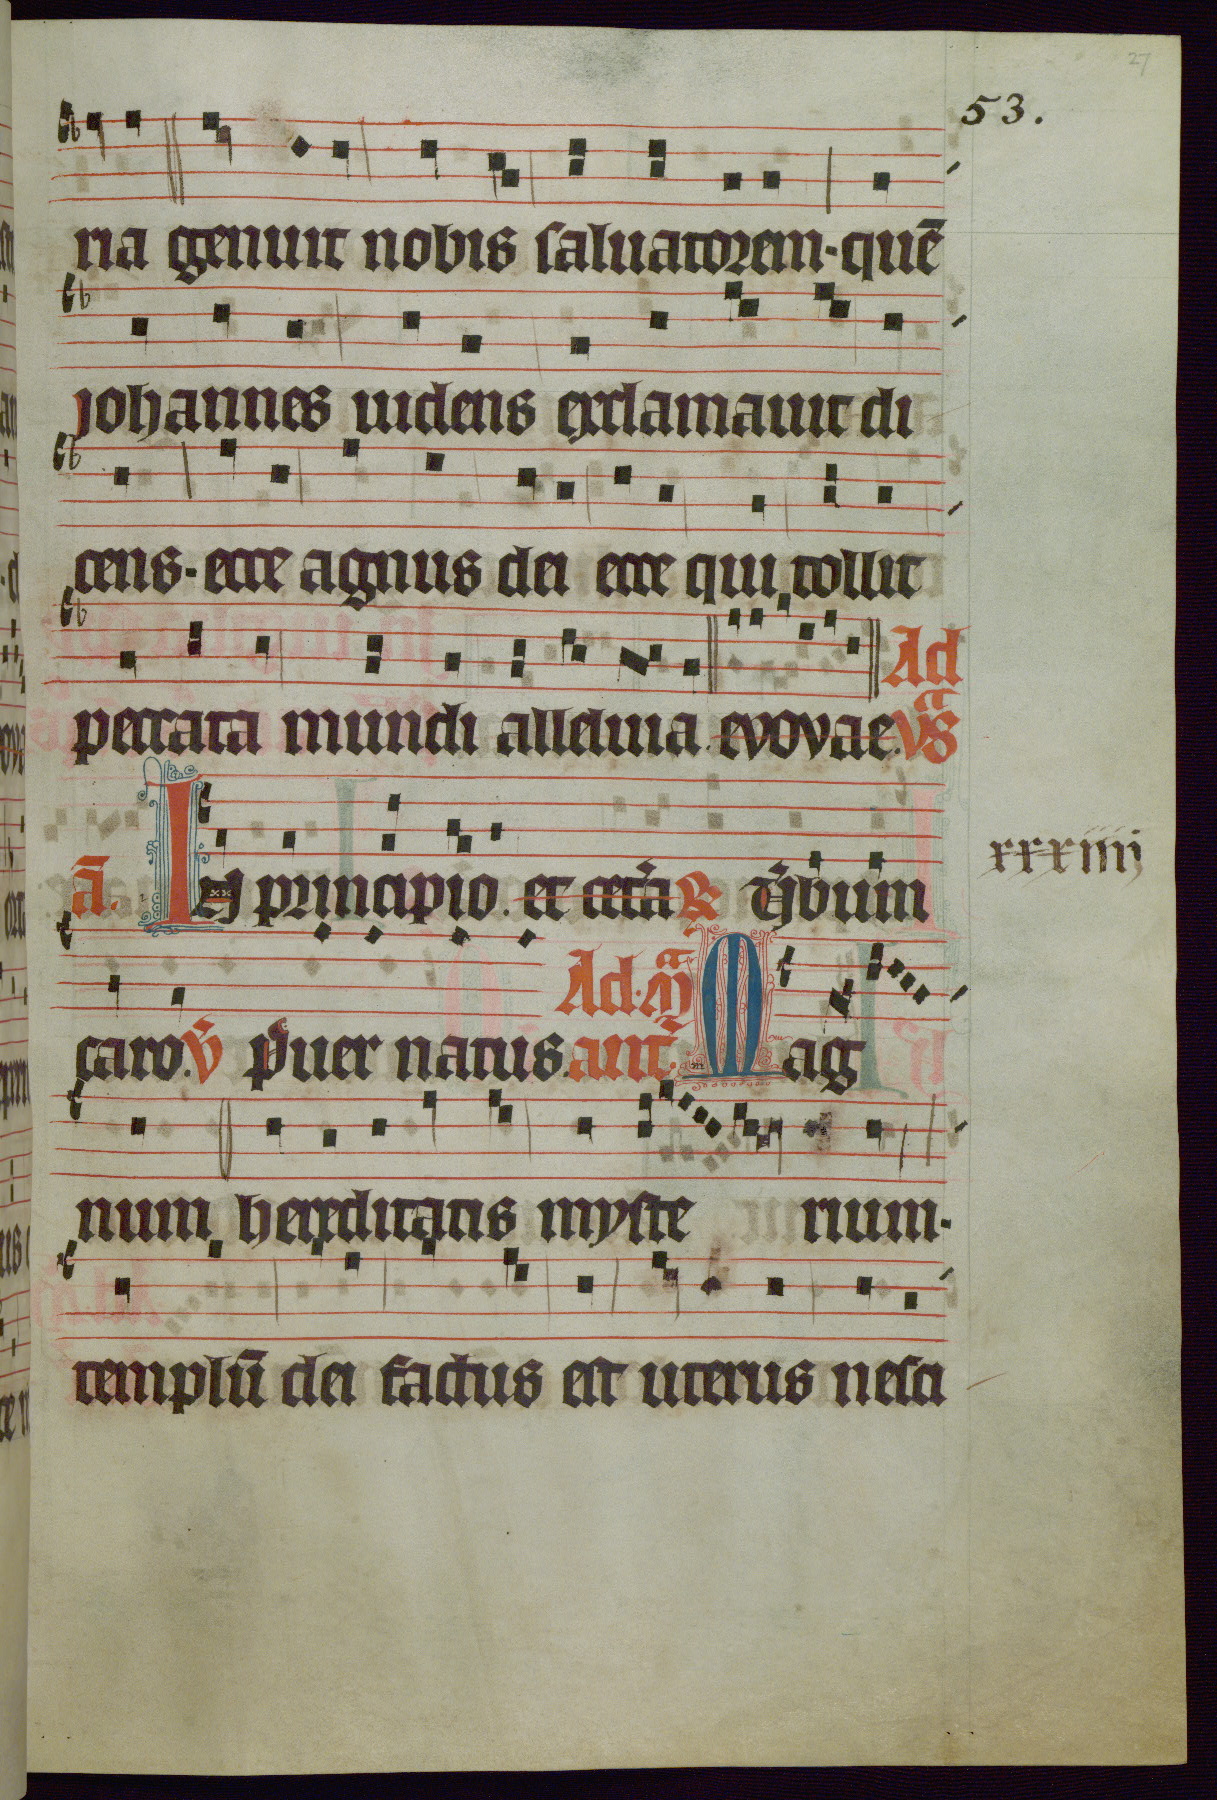 27
53.
ria genuit nobis saluatorem · quē
johannes uidens exclamauit di
cens · ecce agnus dei ecce qui tollit
Ad
peccata mundi alleluia . evovae . vs̄
xxxiiij
a. In principio . et cetā R v̄bum
Ad · m
caro . v puer natus . ant . Mag
num hereditatis myste rium ·
templū dei factus est uterus nesci